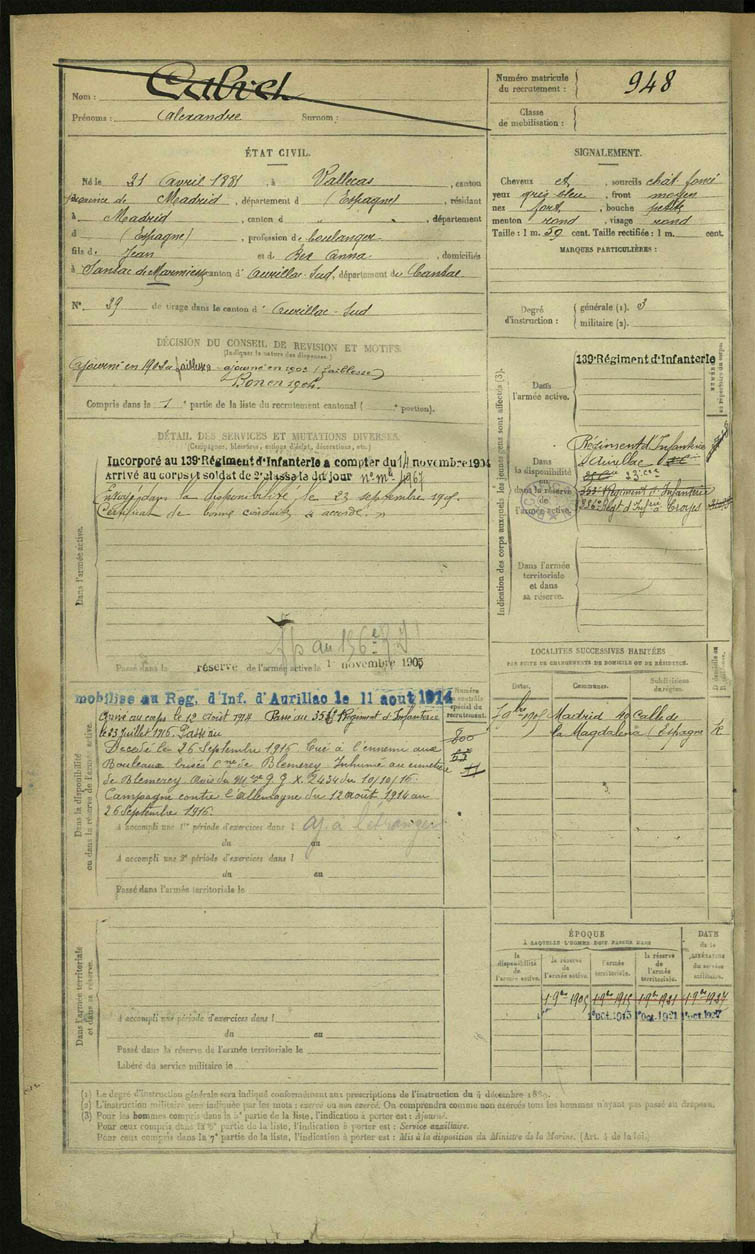 Nom :
Prénoms : Alexandre Surnom :
Numéro matricule
du recrutement : 948
Classe
de mobilisation :
ÉTAT CIVIL.
Né le 21 Avril 1881, à Vallecas, canton
province de Madrid, département d (Espagne), résidant
à Madrid, canton d " " département
d (Espagne), profession de boulanger
fils de Jean et de Bex Anna, domiciliés
à Sansac de Marmiesse canton d'Aurillac-Sud, département du Cantal
N° 29 de tirage dans le canton d'Aurillac-Sud
SIGNALEMENT.
Cheveux et, sourcils chât foncé
yeux gris bleu, front moyen
nez fort, bouche petite
menton rond, visage rond
Taille : 1 m. 59 cent. Taille rectifiée : 1 m. cent.
MARQUES PARTICULIÈRES :
Degré
d'instruction :
générale (1). 3
militaire (2).
DÉCISION DU CONSEIL DE REVISION ET MOTIFS.
(Indiquer la nature des dispenses.)
Ajourné en 1902 faiblesse - ajourné en 1903 (faiblesse)
Bon en 1904.
Compris dans la 1e partie de la liste du recrutement cantonal ( portion).
DÉTAIL DES SERVICES ET MUTATIONS DIVERSES.
(Campagnes, blessures, actions d'éclat, décorations, etc.)
Dans l'armée active.
Incorporé au 139e Régiment d'Infanterie à compter du 14 novembre 1904
Arrivé au corps et soldat de 2e classe le dit jour n° mle 4967
Envoyé dans la disponibilité le 23 septembre 1905.
Certificat de bonne conduite "accordé"
Passé dans la réserve de l'armée active le 1 novembre 1905
Indication des corps auxquels les jeunes gens sont affectés (3).
Dans
l'armée active.
139e Régiment d'Infanterie
Dans
la disponibilité
ou
dans la réserve
de
l'armée active.
Régiment d'Infanterie
d'Aurillac
Régiment d'Infanterie
Dans l'armée
territoriale
et dans
sa réserve.
LOCALITÉS SUCCESSIVES HABITÉES
PAR SUITE DE CHANGEMENTS DE DOMICILE OU DE RÉSIDENCE.
Dates.
Communes.
Subdivisions
de région.
Madrid 40 Calle de
la Magdalena (Espagne) R
Dans la disponibilité
ou dans la réserve de l'armée active.
mobilisé au Reg. d'Inf. d'Aurillac le 11 aout 1914
Numéro
au contrôle
spécial du
recrutement.
800
Arrivé au corps le 12 Août 1914 Passé au Régiment d'Infanterie
le 23 Juillet 1916.
Décédé le 26 Septembre 1916 Tué à l'ennemi aux
Bouleaux brisés Cne de Blemerey Inhumé au cimetière
de Blemerey Avis du G.Q.X. 2434 du 10/10/16.
Campagne contre l'Allemagne du 12 août 1914 au
26 Septembre 1916.
A accompli une 1re période d'exercices dans l aj. à l'étranger
du au
A accompli une 2e période d'exercices dans l
du au
Passé dans l'armée territoriale le
Dans l'armée territoriale
et dans sa réserve.
A accompli une période d'exercices dans l
du au
Passé dans la réserve de l'armée territoriale le
Libéré du service militaire le
ÉPOQUE
À LAQUELLE L'HOMME DOIT PASSER DANS
DATE
de la
LIBÉRATION
du service
militaire.
la
disponibilité
de
l'armée active.
la réserve
de
l'armée active.
l'armée
territoriale.
la réserve
de
l'armée
territoriale.
1 9bre 1905 1 9bre 1915 1 9bre 1921 1 9bre 1927
1er oct. 1915 1er oct. 1921 1er oct. 1927
(1) Le degré d'instruction générale sera indiqué conformément aux prescriptions de l'instruction du 4 décembre 1889.
(2) L'instruction militaire sera indiquée par les mots : exercé ou non exercé. On comprendra comme non exercés tous les hommes n'ayant pas passé au drapeau.
(3) Pour les hommes compris dans la 2e partie de la liste, l'indication à porter est : Ajourné.
Pour ceux compris dans la partie de la liste, l'indication à porter est : Service auxiliaire.
Pour ceux compris dans la 7e partie de la liste, l'indication à porter est : Mis à la disposition du Ministre de la Marine. (Art. 4 de la loi.)